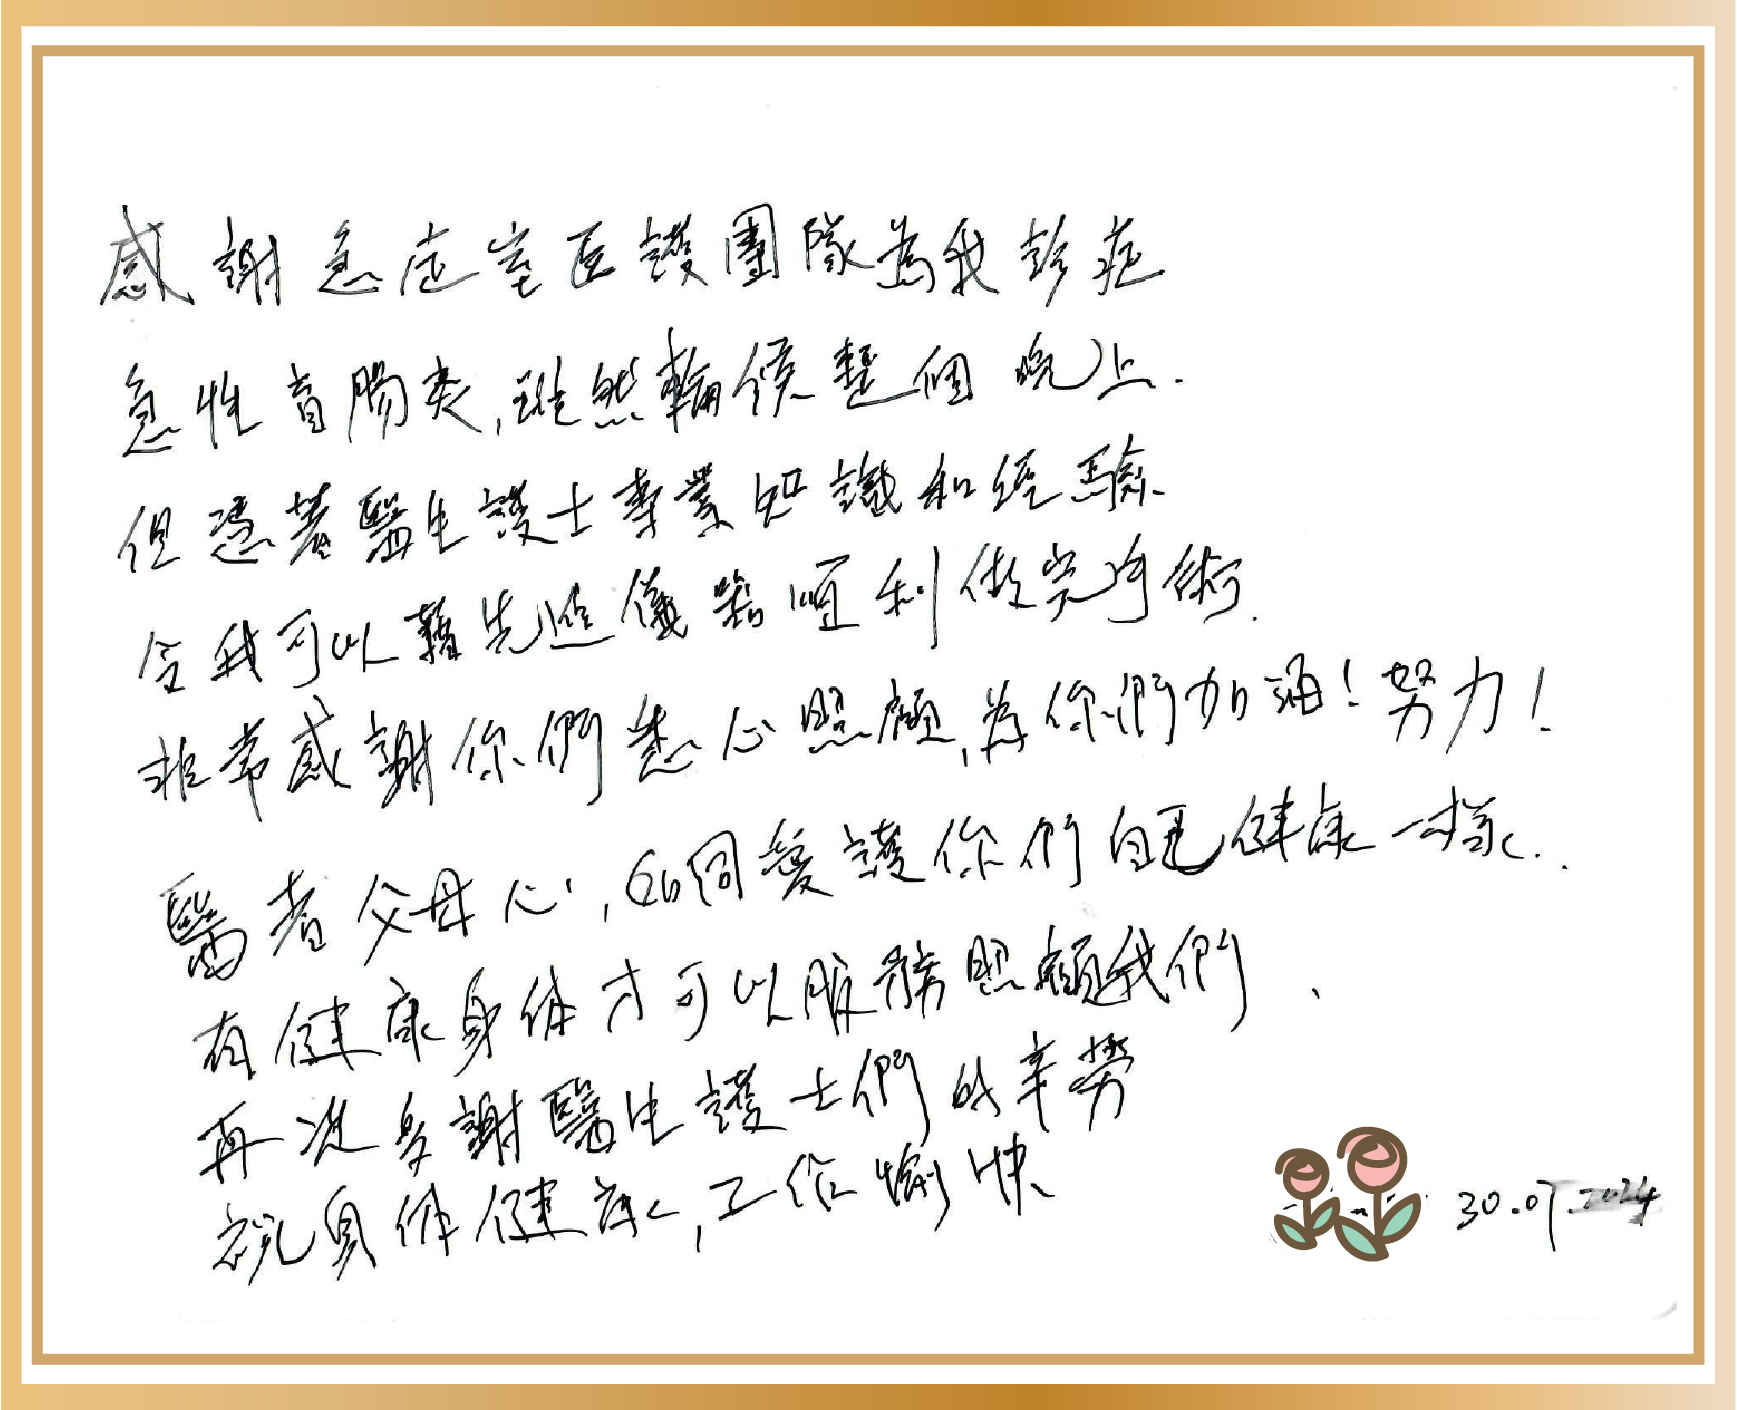 感謝急症室医護團隊為我診症
急性盲腸炎,雖然輪候整個晚上.
但憑著醫生護士專業知識和經驗
令我可以藉先進儀器順利做完手術.
非常感謝你們悉心照顧,為你們加油!努力!
醫者父母心,如同愛護你們自己健康一樣..
有健康身体才可以服務照顧我們、
再次多謝醫生護士們的辛勞
祝身体健康,工作愉快
30.07.2024